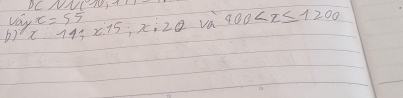 vậy x = 55
b) x 14; x 15; x . 20 và 900 < x ≤ 1200